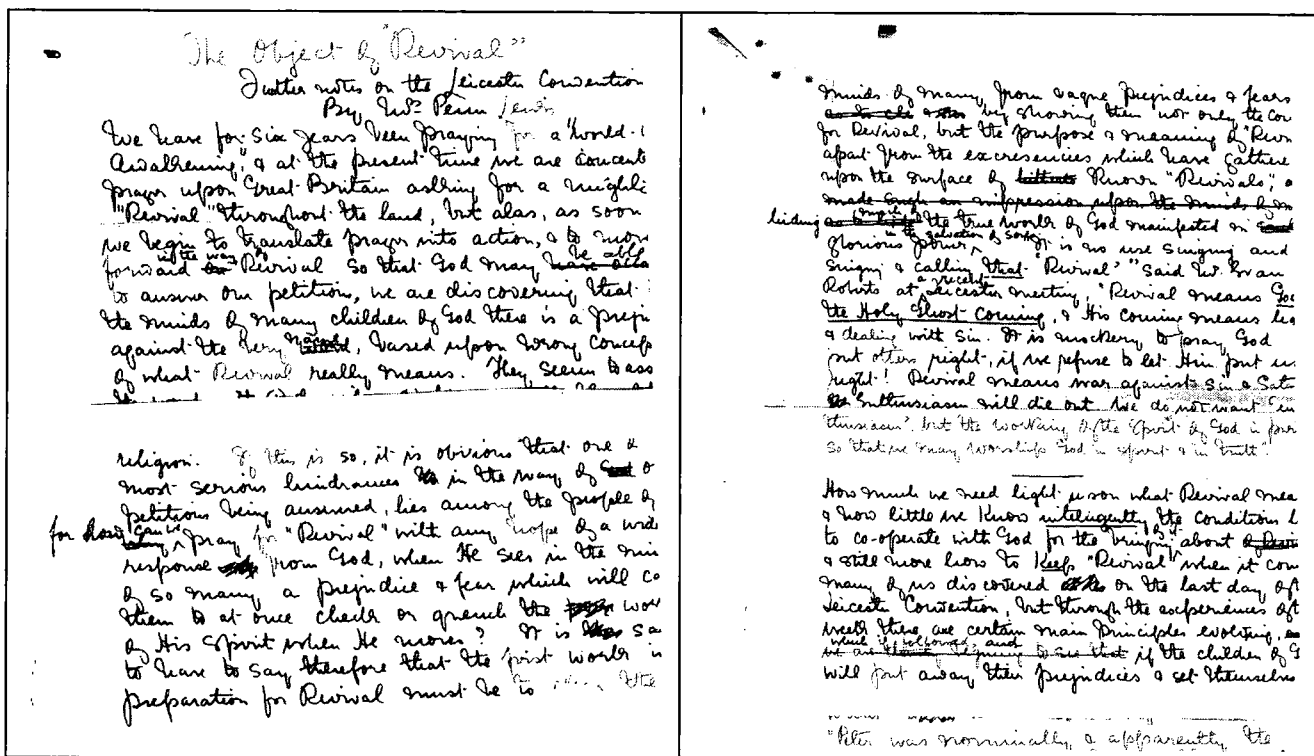 The Object of "Revival"
Further notes on the Leicester Convention
By Mrs Penn Lewis
We have for six years been praying for a "World-
Awakening", & at the present time we are concent
prayer upon Great Britain asking for a mighti
"Revival" throughout the land, but alas, as soon
we begin to translate prayer into action, & to move
forward in the way of Revival so that God may be able
to answer our petition, we are discovering that
the minds of many children of God there is a prej
against the very word, based upon wrong concep
of what Revival really means. They seem to ass
religion. If this is so, it is obvious that one
most serious hindrances in the way of
petitions being answered, lies among the people of
for how can we pray for "Revival" with any hope of a wide
response from God, when He sees in the min
of so many a prejudice & fear which will co
them to at once check or quench the wor
of His Spirit when He moves? It is sa
to have to say therefore that the first work in
preparation for Revival must be to the
minds of many from vague prejudices & fears
by showing them not only the con
for Revival, but the purpose & meaning of "Revi
apart from the excresencies which have gathere
upon the surface of known "Revivals", a
made such an impression upon the minds of m
hiding the true work of God manifested in
glorious power in the salvation of souls. "It is no use singing and
singing & calling that 'Revival'" said Mr. Evan
Roberts at recent Leicester meeting, "Revival means God
the Holy Ghost coming, & His coming means
& dealing with sin. It is mockery to pray God
put others right, if we refuse to let Him put us
right! Revival means war against sin & Sata
Enthusiasm will die out. We do not want 'en
thusiasm', but the working of the Spirit of God in
so that we may worship God in spirit & in truth".
How much we need light upon what Revival mea
& how little we know intelligently the conditions
to co-operate with God for the "bringing" about
& still more how to keep "Revival" when it com
many of us discovered on the last day of t
Leicester Convention, but through the experiences of t
week there are certain main principles evolving,
which if followed and
we are beginning to see that if the children of G
will put away their prejudices & set themselves
"Peter was nominally & apparently the